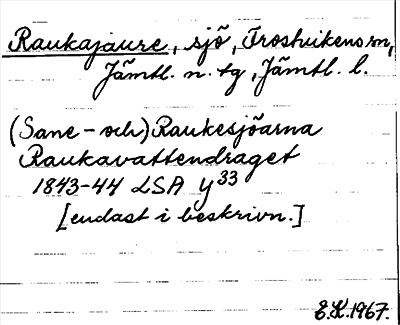 Raukajaure, sjö, Frostvikens sn,
Jämtl. n. tg, Jämtl. l.
(Sane- och) Raukesjöarna
Raukavattendraget
1843-44 LSA Y33
[endast i beskrivn.]
E.K. 1967.